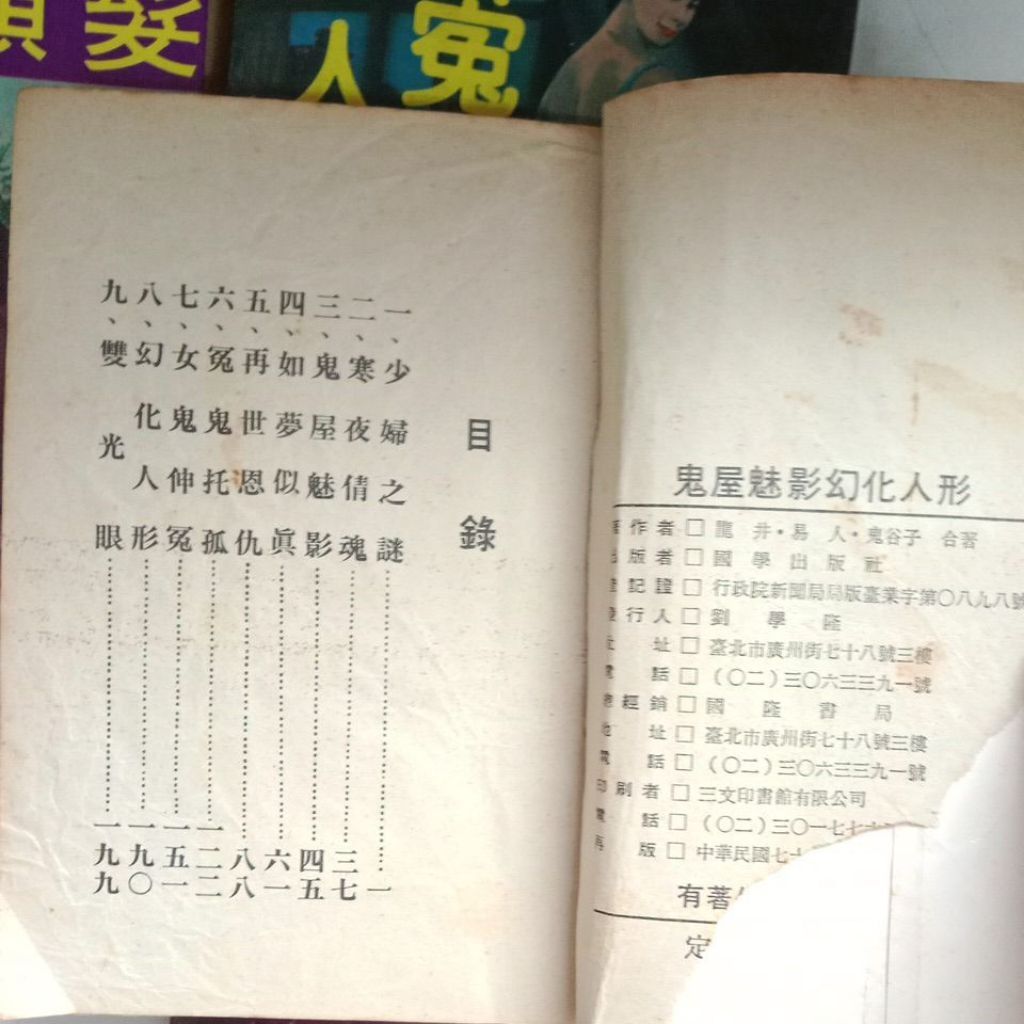 冤
人
目錄
一、少婦之謎……一
二、寒夜倩魂……三七
三、鬼屋魅影……四五
四、如夢似眞……六一
五、再世恩仇……八八
六、冤鬼托孤……一二二
七、女鬼伸冤……一五一
八、幻化人形……一九〇
九、雙光眼……一九九
鬼屋魅影幻化人形
著作者□龍井・易人・鬼谷子 合著
出版者□國學出版社
登記證□行政院新聞局局版臺業字第〇八九八號
發行人□劉學隆
社址□臺北市廣州街七十八號三樓
電話□(〇二)三〇六三三九一號
總經銷□國隆書局
地址□臺北市廣州街七十八號三樓
電話□(〇二)三〇六三三九一號
印刷者□三文印書館有限公司
電話□(〇二)三〇一七七
再版□中華民國七十
有著
定